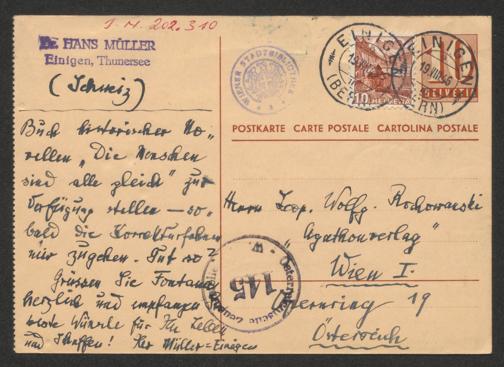 I. N. 202.310
Dr HANS MÜLLER
Einigen, Thunersee
(Schweiz)
Buch historischer No-
vellen „Die Menschen
sind alle gleich" zur
Verfügung stellen — so-
bald die Korrekturfahnen
mir zugehen. Gut so?
Grüssen Sie Fontana
herzlich und empfangen
beste Wünsche für Ihr Leben
und Schaffen! Ihr Müller=Einigen
WIENER STADTBIBLIOTHEK
EINIGEN
(BERN)
EINIGEN
(BERN)
10
HELVETIA
10
HELVETIA
POSTKARTE CARTE POSTALE CARTOLINA POSTALE
Herrn Leop. Wolfg. Rochowanski
„Agathonverlag"
Wien I.
Opernring 19
Österreich
Österreichische Zensurstelle
W.
145